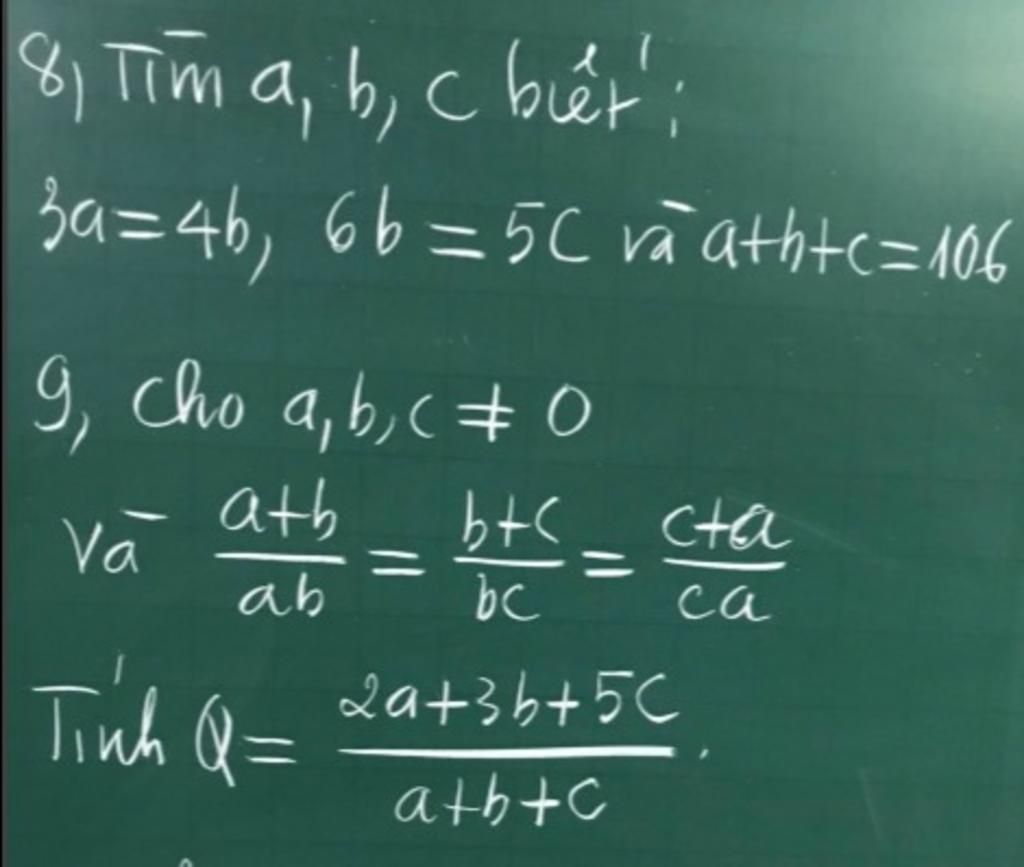 8, Tìm a, b, c biết:
3a=4b, 6b=5C và a+b+c=106
9, cho a,b,c ≠ 0
và \frac{a+b}{ab} = \frac{b+c}{bc} = \frac{c+a}{ca}
Tính Q= \frac{2a+3b+5C}{a+b+c}.